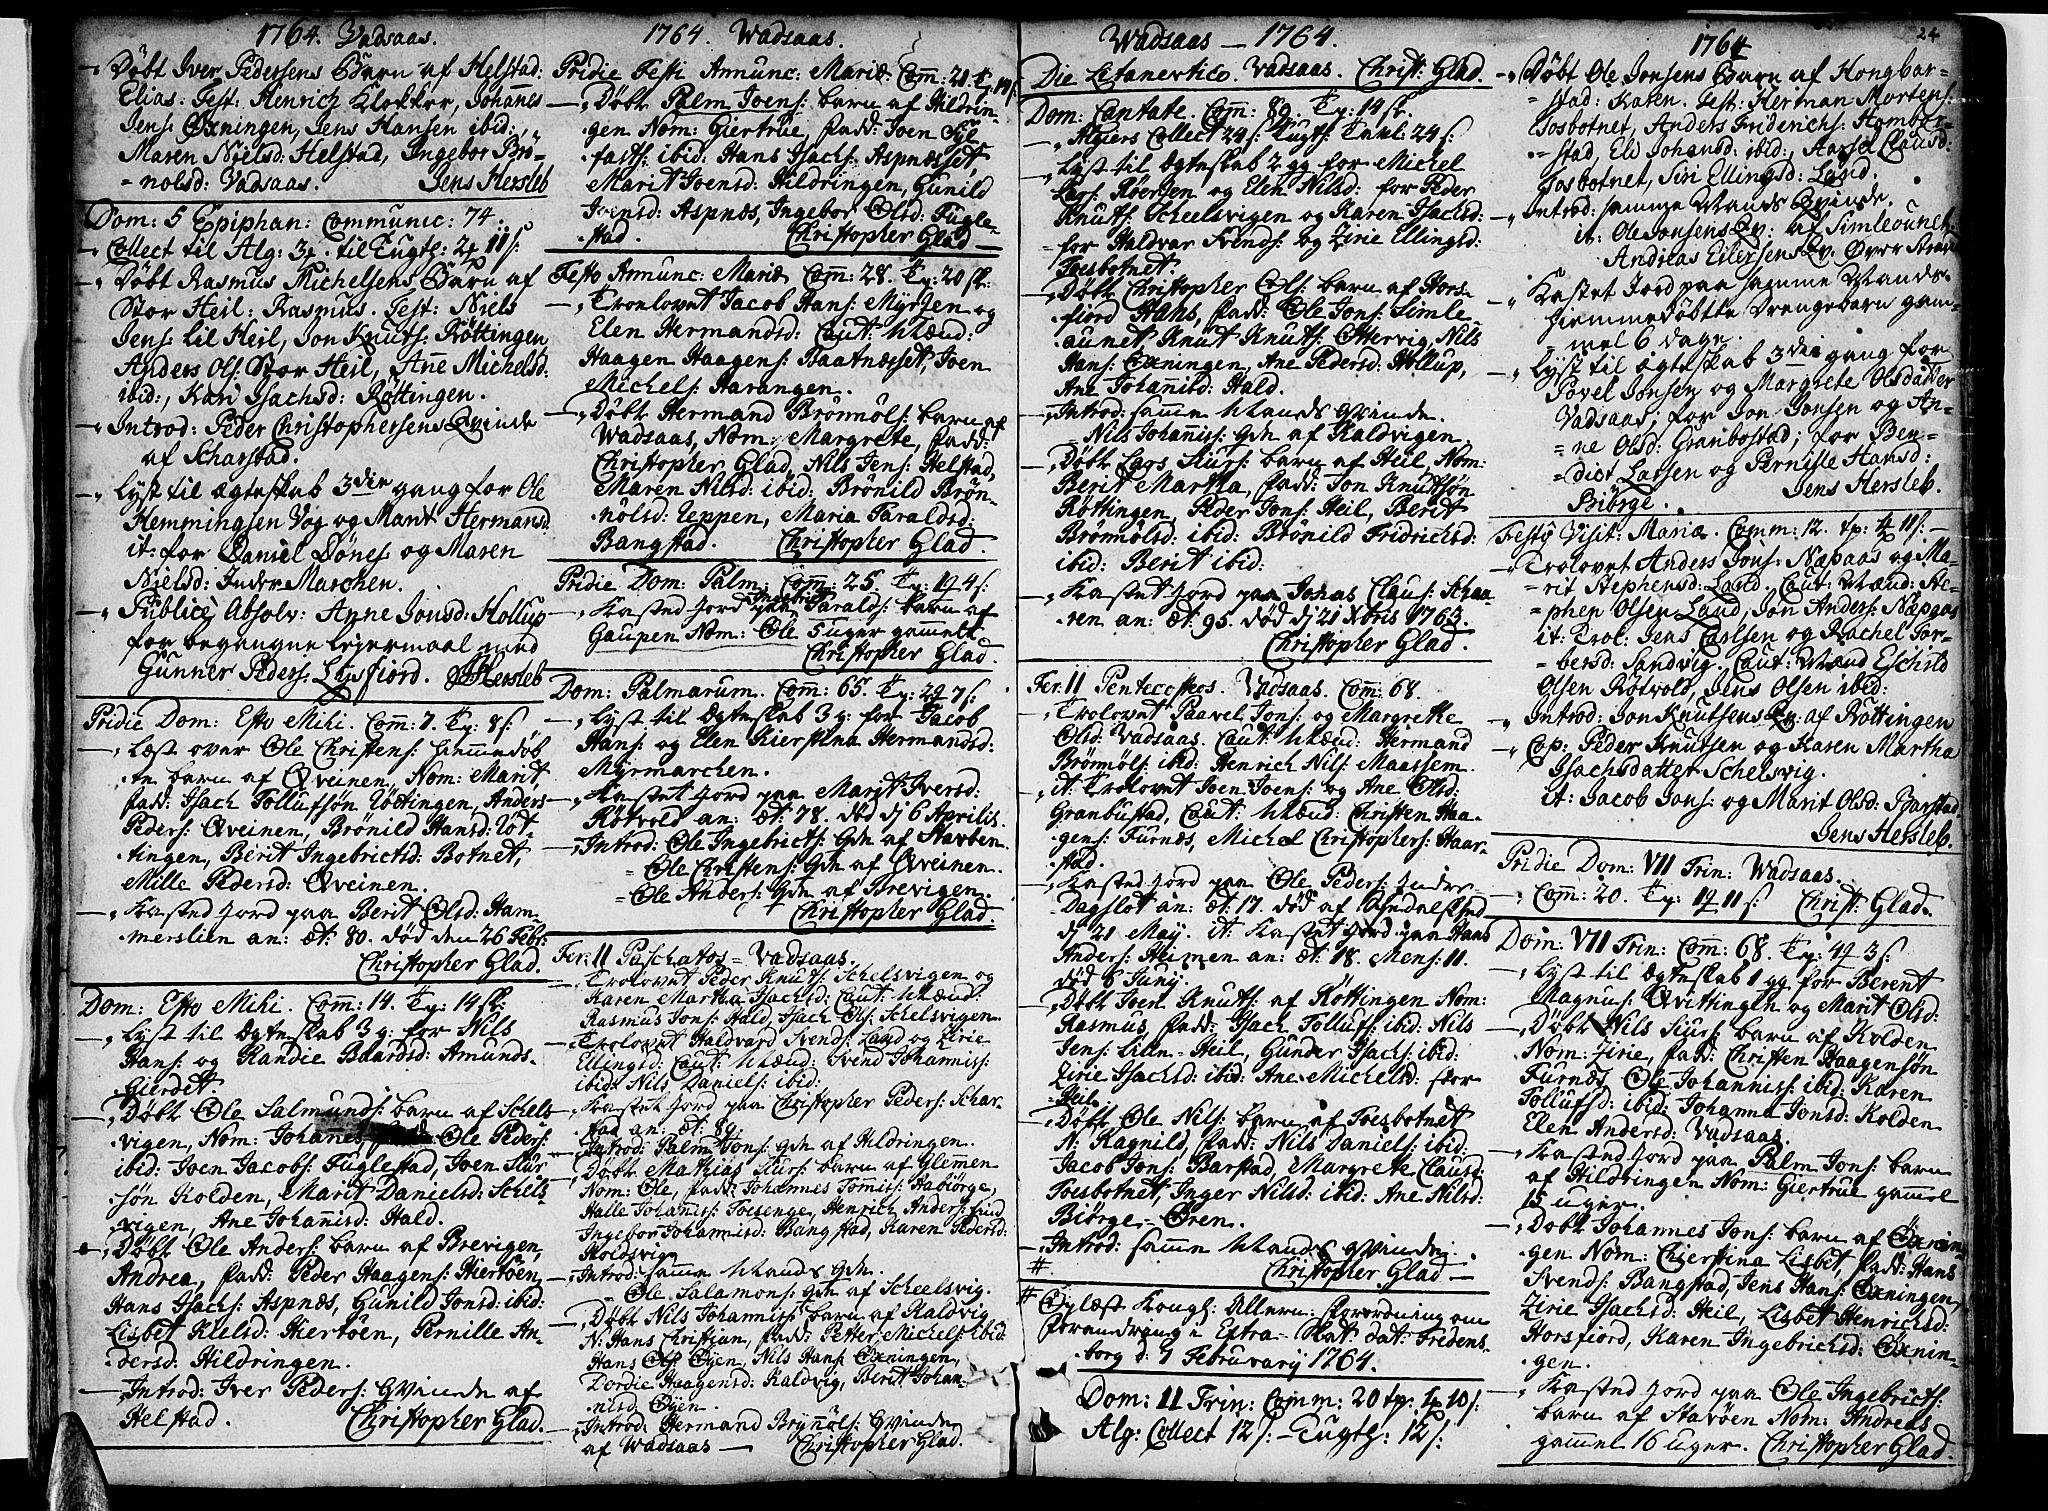 1764. Vadsaas.
Døbt Iver Pedersens Barn af Helstad:
Elias: Test: Henrich Klokker, Johannes
Jens: Øxningen, Jens Hansen ibid:,
Maren Nielsd: Helstad, Ingebor Brö-
nolsd: Vadsaas. Jens Hersleb
Dom: 5 Epiphan: Communic: 74.
Collect til Alg: 3 til Tugth:
Døbt Rasmus Michelsens Barn af
Stor Heil: Rasmus. Test: Niels
Jens: Lil Heil, Jon Knuts: Röttingen
Anders Ols: Stor Heil, Anne Michelsd:
ibid:, Kari Isachsd: Röttingen.
Introd: Peder Christophersens Qvinde
af Scharstad.
Lyst til ægteskab 3die gang for Ole
Hemmingsen Vog og Marit Hermansd
it: for Daniel Dönes: og Maren
Nielsd: Inder Marchen.
Publicé Absolv: Anne Jonsd: Hollup
for begangne Leiermaal med
Gunner Peders: Lysfiord. Hersleb
Pridie Dom: Esto Mihi. Com: 7. Tp: 8 s:
Læst over Ole Christens: hiemmedøb
te barn af Qveinen, Nom: Marit,
fadd: Isach Tollufsøn Röttingen, Anders
Peders: Qveinen, Brönild Hansd: Röt-
tingen, Berit Ingebrictsd: Botnet,
Mille Pedersd: Qveinen.
Kasted Jord paa Berit Olsd: Ham-
merslien an: æt: 80. død den 26 Febr:
Christopher Glad.
Dom: Esto Mihi. Com: 14. Tp: 14 s:
Lyst til Ægteskab 3 g: for Nils
Hans: og Kandie Baardsd: Amunds-
Gierdet
Døbt Ole Salmunds: barn af Schels
vigen, Nom: Johanes, Ole Peders:
ibid: Joen Jacobs: Fuglestad, Joen Siur
søn Kolden, Marit Danielsd: Schels
vigen, Ane Johanisd: Hald.
Døbt Ole Anders: barn af Brevigen,
Andrea, fadd: Peder Haagens: Hiertöen
Hans Isachs: Aspnæs, Gunild Jonsd: ibid:
Lisbet Kielsd: Hiertöen, Pernille An-
dersd: Hildringen.
Introd: Iver Peders: Qvinde af
Helstad. Christopher Glad.
1764. Wadsaas.
Pridie Festi Annunc: Mariæ Com: 21
Døbt Palm Joens: barn af Hildrin-
gen Nom: Giertrue, fadd: Joen Sil
fasts: ibid: Hans Isachs: Aspnæsset,
Marit Joensd: Hildringen, Gunild
Joensd: Aspnæs, Ingebor Olsd: Fugle-
stad. Christopher Glad
Festo Annunc: Mariæ Com: 28. Tp: 20 s:
Trolovet Jacob Hans: Myrsen og
Elen Hermandsd: Caut: Mænd:
Haagen Haagens: Baatnæsset, Joen
Michels: Harangen.
Døbt Hermand Brönnöls: barn af
Wadsaas, Nom: Margrete, fadd:
Christopher Glad, Nils Jens: Helstad,
Maren Nilsd: ibid: Brönild Brön-
nolsd: Teppen, Maria Taraldsd:
Bangstad. Christopher Glad.
Pridie Dom: Palm: Com: 25. Tp: 19 4 s:
Kasted Jord paa Ingebrict Taralds: barn af
Gaupen Nom: Ole 5 uger gammelt.
Christopher Glad.
Dom: Palmarum. Com: 65. Tp: 7 s:
Lyst til Ægteskab 3 g: for Jacob
Hans: og Elen Kierstina Hermandsd:
Myrmarchen.
Kastet Jord paa Marit Iversd:
Rötvold an: æt: 78. död dj 6 Aprilis.
Introd: Ole Ingebricts: Qdn af Stavöen
Ole Christens: Qdn af Qveinen.
Ole Anders: Qdn af Brevigen.
Christopher Glad.
Fer: II Paschatos - Vadsaas.
Trolovet Peder Knuts: Schelsvigen og
Karen Martha Isachsd: Caut: Mænd:
Rasmus Jons: Hald, Isach Ols: Schelsvigen
Trolovet Haldvard Svends: Land og Zirie
Ellingsd: Caut: Mænd: Svend Johannis:
ibid: Nils Daniels: ibid:
Kastet Jord paa Christopher Peders: Schar-
stad an: æt: 89.
Introd: Palm Jons: Qdn af Hildringen.
Døbt Mathias Siurs: barn af Glemmen
Nom: Ole, fadd: Johannes Tomis: Habiörge,
Halle Johanis: Toesenge, Henrich Anders:
Ingebor Johannisd: Bangstad, Karen Pedersd:
Holdsvig
Introd: samme Mands Qdn.
Ole Salamons: Qdn af Scheelsvig.
Døbt Nils Johannis: barn af Kaldvig
N: Hans Christian, fadd: Petter Michels: ibid:
Hans Ols: Öyen, Nils Hans: Öxningen,
Dordie Haagensd: Kaldvig, Berit Johan-
nisd: Öyen.
Introd: Hermand Brynnöls: Qvinde
af Wadsaas — Christopher Glad.
Wadsaas — 1764.
Die Letanevtico. Vadsaas. Christ: Glad.
Dom: Cantate. Com: 80. Tp: 14 s:
Algiers Collect 24 s: Tugth: Tavl: 24 s:
Lyst til Ægteskab 2 gg for Michel
Lars: Röersen og Elen Nilsd: for Peder
Knuts: Scheelsvigen og Karen Isachsd:
for Haldvar Svends: og Zirie Ellingsd:
Toesbotnet.
Døbt Christopher Ols: barn af Hors-
fiord Hans, fadd: Ole Jons: Simle-
aunet, Knut Knuts: Ottervig, Nils
Hans: Öxningen, Ane Pedersd: Hollup,
Ane Johanisd: Hald.
Introd: samme Mands Qvinde.
Nils Johanis: Qdn af Kaldvigen.
Døbt Lars Siurs: barn af Heil, Nom:
Berit Martha, fadd: Jon Knudsön
Röttingen, Peder Jons: Heil, Berit
Brönnölsd: ibid: Brönild Fridrichsd:
ibid: Berit ibid:
Kastet Jord paa Johas Claus: Schaa-
ren an: æt: 95. död dj 21 Xbris 1763.
Christopher Glad.
Fer: II Penticostes. Vadsaas. Com: 68.
Trolovet Paavel Jons: og Margrette
Olsd: Vadsaas. Caut: Mænd: Hermand
Brönnöls: ibid: Henrich Nils: Maassem.
it: Trolovet Joen Joens: og Ane Olsd:
Granbustad, Caut: Mænd: Christen Haa-
gens: Furnæs, Michel Christophers: Haar-
stad.
Kasted Jord paa Ole Peders: Inder-
Dagslot an: æt: 17. død af
dj 21 May. it: Kastet Jord paa Hans
Anders: Heimen an: æt: 18. Mens: 11.
död 6 Junij.
Døbt Joen Knuts: af Röttingen Nom:
Rasmus, fadd: Isach Tollufs: ibid: Nils
Jens: Lille-Heil, Gunder Isachs: ibid:
Zirie Isachsd: ibid: Ane Michelsd: stor
Heil.
Døbt Ole Nils: barn af Toesbotnet
N: Ragnild, fadd: Nils Daniels: ibid:
Jacob Jons: Barstad, Margrete Clausd:
Toesbotnet, Inger Nilsd: ibid: Ane Nilsd:
Biörge-Ören.
Introd: samme Mands Qvinde.
# Christopher Glad —
# Oplæst Kongl: Allern: forordning om
forandring i Extra-Skat dat: Fredens-
borg d: 7 Februarij 1764.
Dom: II Trin: Comm: 20 tp: 10 s:
Alg: Collect 12 s: Tugth: 12 s:
1764
24
Døbt Ole Jonsens Barn af Hongbar-
stad: Karen. Test: Herman Mortens:
Tosbotnet, Anders Friderichs: Hombor-
stad, Eli Johansd: ibid:, Aasel Clausd:
Tosbotnet, Siri Ellingsd: Land.
Introd: samme Mands Qvinde.
it: Ole Jonsens Qv: af Simleounet,
Andreas Eilersens Qv. Øver
Kastet Jord paa samme Mands
hiemmedøbte Drengebarn gam-
mel 6 dage.
Lyst til ægteskab 3die gang for
Povel Jonsen og Margrete Olsdatter
Vadsaas; for Jon Jonsen og An-
ne Olsd: Granbostad; for Ben-
dict Larsen og Pernille Hansd:
Biörge. Jens Hersleb.
Festo Visit: Mariæ. Comm: 12. tp: 11 s:
Trolovet Anders Jons: Næpaas og Ma-
rit Stephensd: Land. Caut: Mænd: Ste-
phen Olsen Land, Jon Anders: Næpaas
it: Trol: Jens Carlsen og Rachel Tor-
bersd: Sandvig. Caut: Mænd Eschild
Olsen Rötvold, Jens Olsen ibid:
Introd: Jon Knutsens Qv: af Röttingen
Cop: Peder Knutsen og Karen Martha
Isachsdatter Schelsvig.
it: Jacob Jons: og Marit Olsd: Barstad.
Jens Hersleb.
Pridie Dom: VII Trin: Wadsaas.
Com: 20. Tp: 19 11 s: Christ: Glad.
Dom: VII Trin: Com: 68. Tp: 49 3 s:
Lyst til Ægteskab 1 gg for Berent
Magnus: Qvittingen og Marit Olsd:
Døbt Nils Siurs: barn af Kolden
Nom: Zirie, fadd: Christen Haagensön
Furnæs, Ole Johannis: ibid: Karen
Tollufsd: ibid: Johanna Jonsd: Kolden
Elen Andersd: Vadsaas.
Kasted Jord paa Palm Jons: barn
af Hildringen Nom: Giertrue gammel
15 uger.
Døbt Johannes Jons: barn af Öxnin-
gen Nom: Chierstina Lisbet, fadd: Hans
Svends: Bangstad, Jens Hans: Öxningen,
Zirie Isachsd: Heil, Lisbet Henrichsd:
Horsfiord, Karen Ingebrichsd: Öxnin-
gen.
Kasted Jord paa Ole Ingebricts:
barn af Stavöen Nom: Andreas
gammel 16 uger. Christopher Glad.